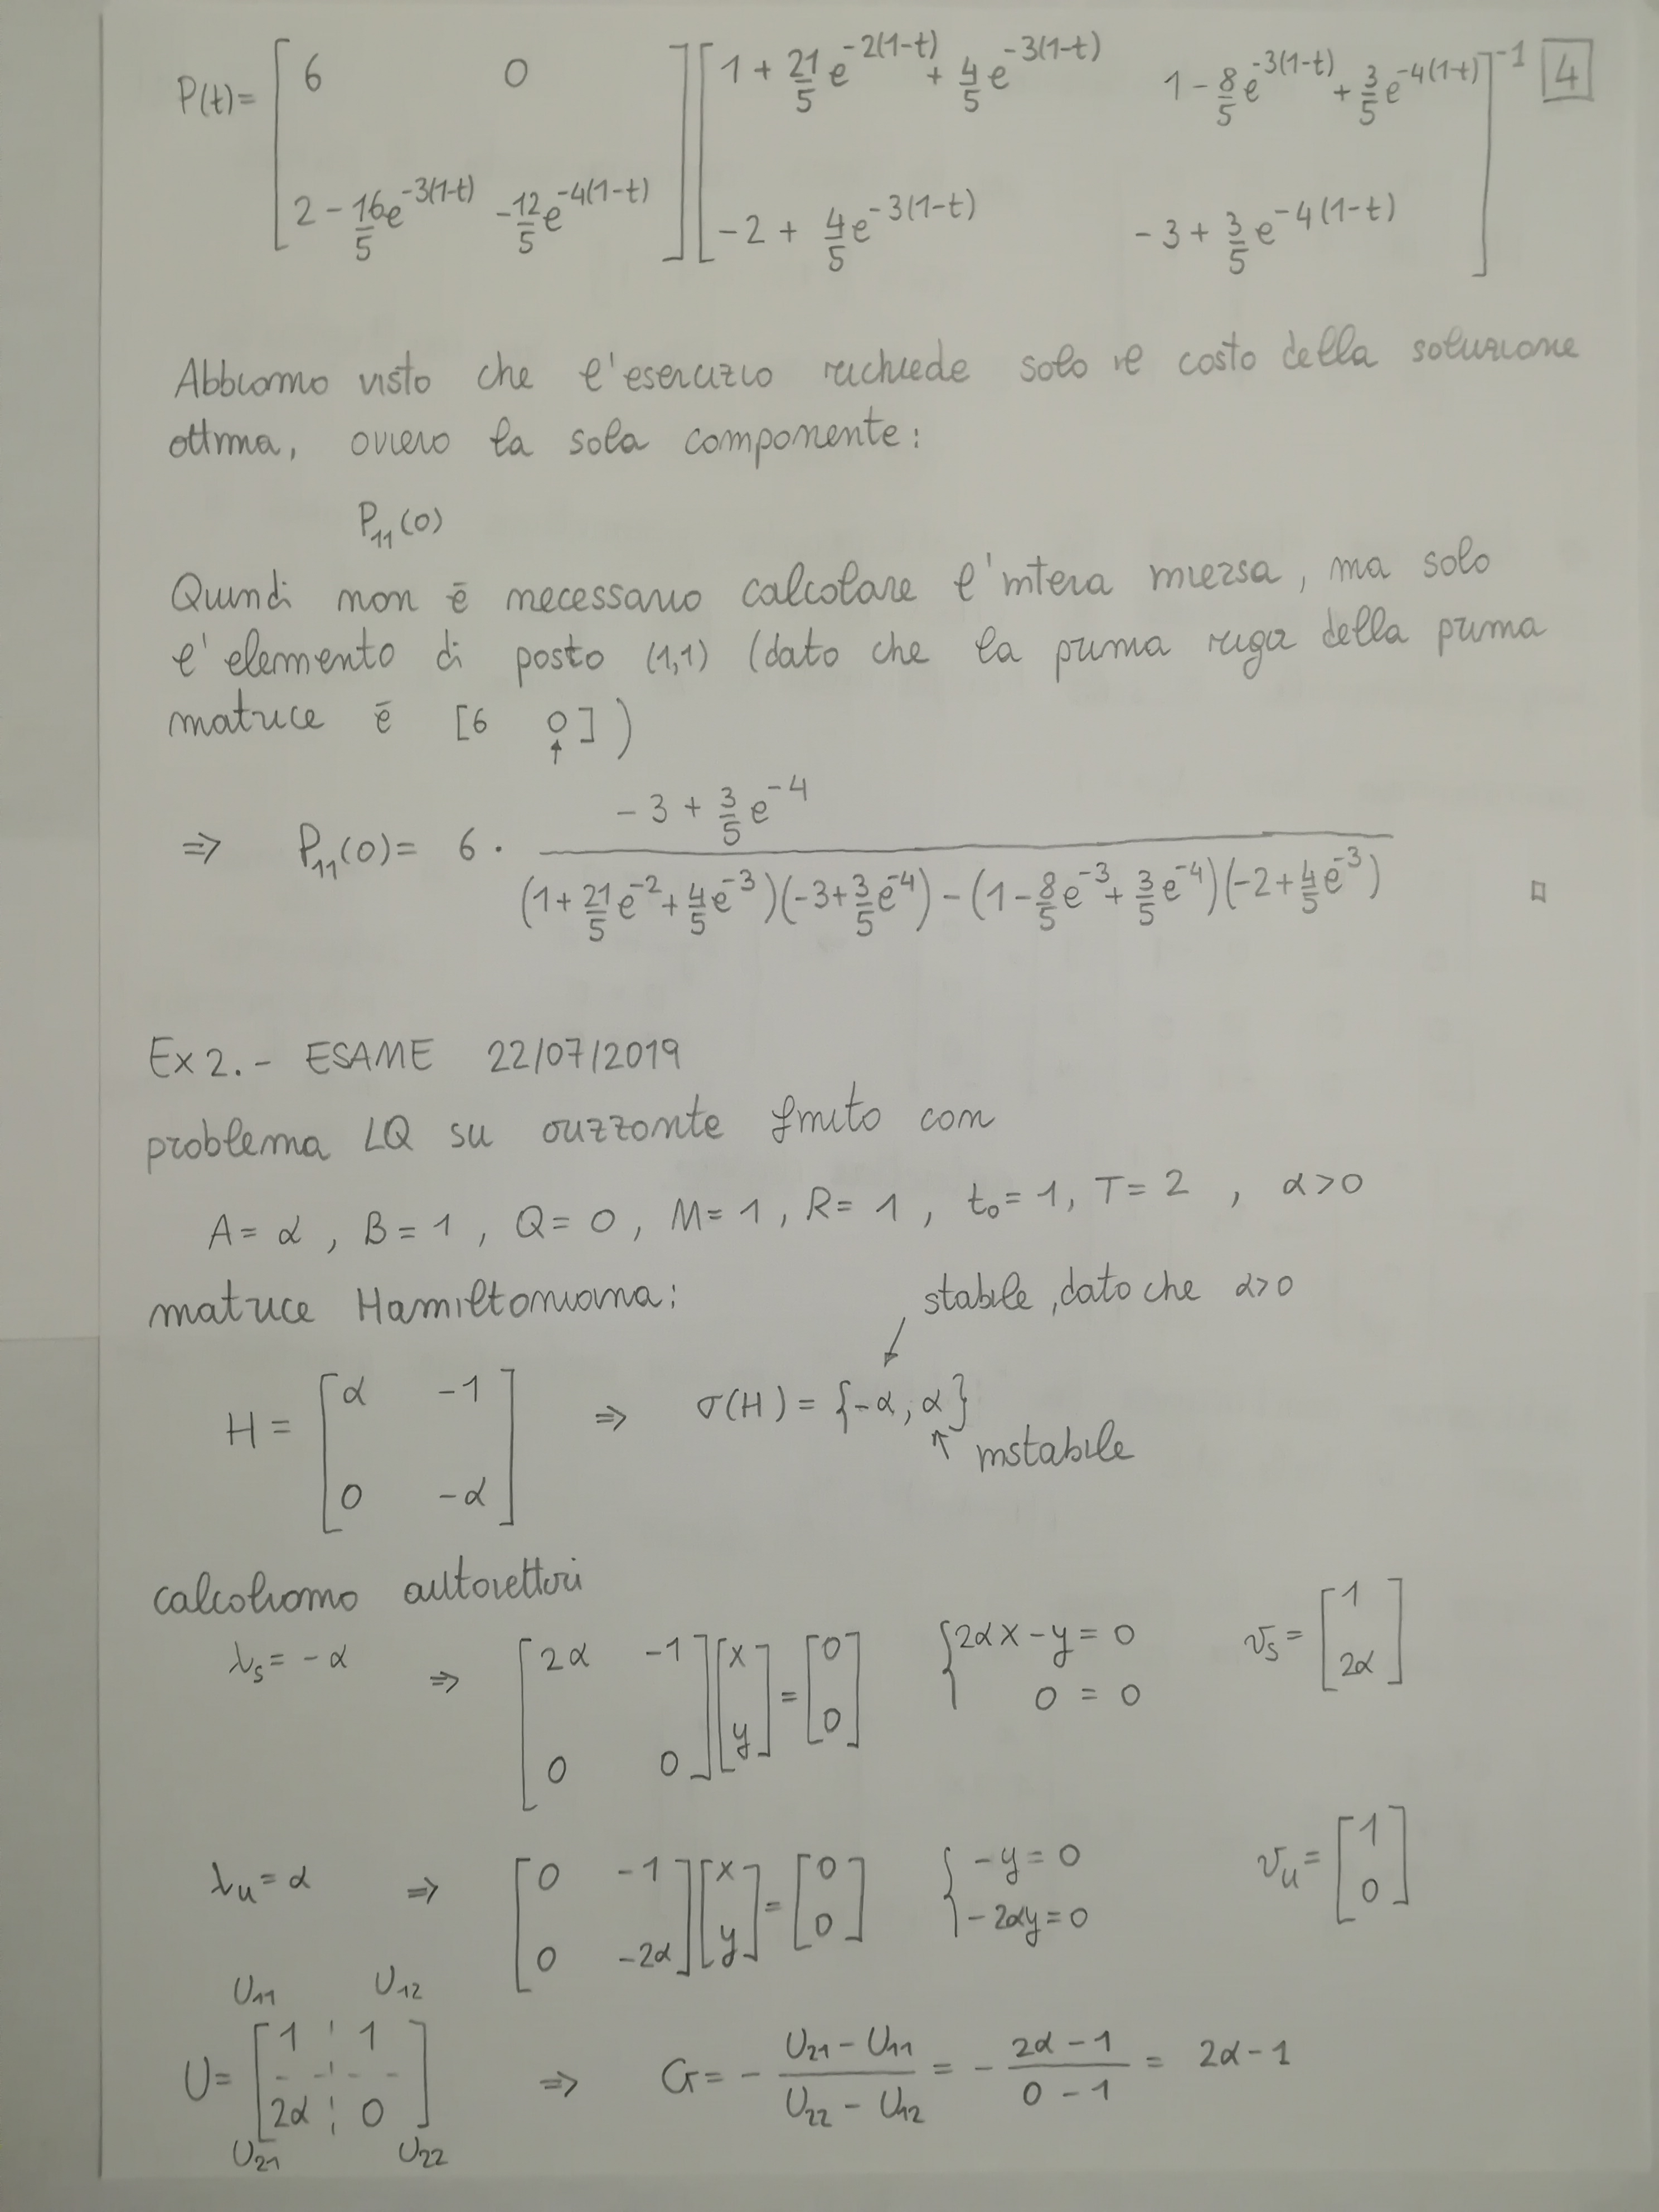 P(t)= [ 6   0 ; 2 - 16/5 e^{-3(1-t)}   -12/5 e^{-4(1-t)} ] [ 1 + 21/5 e^{-2(1-t)} + 4/5 e^{-3(1-t)}   1 - 8/5 e^{-3(1-t)} + 3/5 e^{-4(1-t)} ; -2 + 4/5 e^{-3(1-t)}   -3 + 3/5 e^{-4(1-t)} ]^{-1}   4
Abbiamo visto che l'esercizio richiede solo il costo della soluzione
ottima, ovvero la sola componente:
P₁₁(0)
Quindi non è necessario calcolare l'intera inversa, ma solo
l'elemento di posto (1,1) (dato che la prima riga della prima
matrice è [6 0])
↑
⇒ P₁₁(0) = 6 · (-3 + 3/5 e^{-4}) / ((1 + 21/5 e^{-2} + 4/5 e^{-3})(-3 + 3/5 e^{-4}) - (1 - 8/5 e^{-3} + 3/5 e^{-4})(-2 + 4/5 e^{-3})) □
Ex 2. - ESAME 22/07/2019
problema LQ su orizzonte finito con
A = α , B = 1 , Q = 0 , M = 1 , R = 1 , t₀ = 1, T = 2 , α > 0
matrice Hamiltoniana:
stabile, dato che α>0
↙
H = [ α   -1 ; 0   -α ] ⇒ σ(H) = {-α, α}
↖ instabile
calcoliamo autovettori
λs = -α ⇒ [ 2α   -1 ; 0   0 ] [ x ; y ] = [ 0 ; 0 ]   { 2αx - y = 0 ; 0 = 0   vs = [ 1 ; 2α ]
λu = α ⇒ [ 0   -1 ; 0   -2α ] [ x ; y ] = [ 0 ; 0 ]   { -y = 0 ; -2αy = 0   vu = [ 1 ; 0 ]
U₁₁   U₁₂
U = [ 1 ¦ 1 ; 2α ¦ 0 ] ⇒ G = - (U₂₁ - U₁₁)/(U₂₂ - U₁₂) = - (2α - 1)/(0 - 1) = 2α - 1
U₂₁   U₂₂